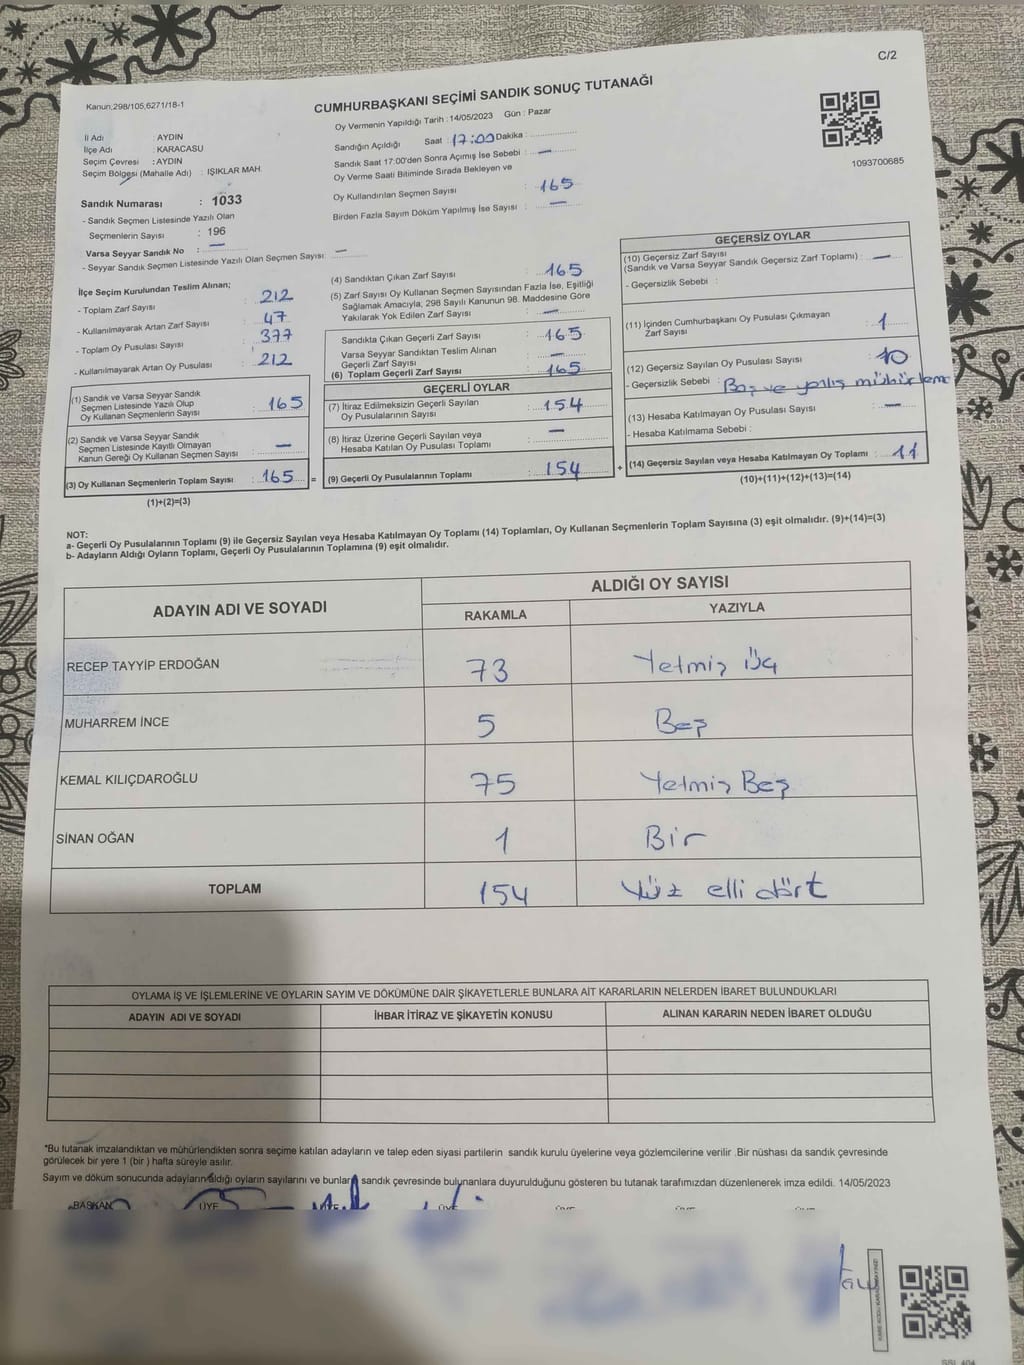 C/2
Kanun,298/105,6271/18-1
CUMHURBAŞKANI SEÇİMİ SANDIK SONUÇ TUTANAĞI
Oy Vermenin Yapıldığı Tarih : 14/05/2023 Gün : Pazar
İl Adı : AYDIN
İlçe Adı : KARACASU
Seçim Çevresi : AYDIN
Seçim Bölgesi (Mahalle Adı) : IŞIKLAR MAH.
Sandığın Açıldığı Saat : 17:00 Dakika :
Sandık Saat 17:00'den Sonra Açımış İse Sebebi : —
Oy Verme Saati Bitiminde Sırada Bekleyen ve
Oy Kullandırılan Seçmen Sayısı : 165
Birden Fazla Sayım Döküm Yapılmış İse Sayısı : —
1093700685
Sandık Numarası : 1033
- Sandık Seçmen Listesinde Yazılı Olan
Seçmenlerin Sayısı : 196
Varsa Seyyar Sandık No : —
- Seyyar Sandık Seçmen Listesinde Yazılı Olan Seçmen Sayısı : —
İlçe Seçim Kurulundan Teslim Alınan;
- Toplam Zarf Sayısı : 212
- Kullanılmayarak Artan Zarf Sayısı : 47
- Toplam Oy Pusulası Sayısı : 377
- Kullanılmayarak Artan Oy Pusulası : 212
(1) Sandık ve Varsa Seyyar Sandık
Seçmen Listesinde Yazılı Olup
Oy Kullanan Seçmenlerin Sayısı : 165
(2) Sandık ve Varsa Seyyar Sandık
Seçmen Listesinde Kayıtlı Olmayan
Kanun Gereği Oy Kullanan Seçmen Sayısı : —
(3) Oy Kullanan Seçmenlerin Toplam Sayısı : 165 =
(1)+(2)=(3)
(4) Sandıktan Çıkan Zarf Sayısı : 165
(5) Zarf Sayısı Oy Kullanan Seçmen Sayısından Fazla İse, Eşitliği
Sağlamak Amacıyla, 298 Sayılı Kanunun 98. Maddesine Göre
Yakılarak Yok Edilen Zarf Sayısı : —
Sandıkta Çıkan Geçerli Zarf Sayısı : 165
Varsa Seyyar Sandıktan Teslim Alınan
Geçerli Zarf Sayısı : —
(6) Toplam Geçerli Zarf Sayısı : 165
GEÇERLİ OYLAR
(7) İtiraz Edilmeksizin Geçerli Sayılan
Oy Pusulalarının Sayısı : 154
(8) İtiraz Üzerine Geçerli Sayılan veya
Hesaba Katılan Oy Pusulası Toplamı : —
(9) Geçerli Oy Pusulalarının Toplamı : 154 +
GEÇERSİZ OYLAR
(10) Geçersiz Zarf Sayısı
(Sandık ve Varsa Seyyar Sandık Geçersiz Zarf Toplamı) : —
- Geçersizlik Sebebi :
(11) İçinden Cumhurbaşkanı Oy Pusulası Çıkmayan
Zarf Sayısı : 1
(12) Geçersiz Sayılan Oy Pusulası Sayısı : 10
- Geçersizlik Sebebi : Boş ve yanlış mühürleme
(13) Hesaba Katılmayan Oy Pusulası Sayısı : —
- Hesaba Katılmama Sebebi :
(14) Geçersiz Sayılan veya Hesaba Katılmayan Oy Toplamı : 11
(10)+(11)+(12)+(13)=(14)
NOT:
a- Geçerli Oy Pusulalarının Toplamı (9) ile Geçersiz Sayılan veya Hesaba Katılmayan Oy Toplamı (14) Toplamları, Oy Kullanan Seçmenlerin Toplam Sayısına (3) eşit olmalıdır. (9)+(14)=(3)
b- Adayların Aldığı Oyların Toplamı, Geçerli Oy Pusulalarının Toplamına (9) eşit olmalıdır.
ADAYIN ADI VE SOYADI ALDIĞI OY SAYISI
RAKAMLA YAZIYLA
RECEP TAYYİP ERDOĞAN 73 Yetmiş Üç
MUHARREM İNCE 5 Beş
KEMAL KILIÇDAROĞLU 75 Yetmiş Beş
SİNAN OĞAN 1 Bir
TOPLAM 154 Yüz elli dört
OYLAMA İŞ VE İŞLEMLERİNE VE OYLARIN SAYIM VE DÖKÜMÜNE DAİR ŞİKAYETLERLE BUNLARA AİT KARARLARIN NELERDEN İBARET BULUNDUKLARI
ADAYIN ADI VE SOYADI İHBAR İTİRAZ VE ŞİKAYETİN KONUSU ALINAN KARARIN NEDEN İBARET OLDUĞU
*Bu tutanak imzalandıktan ve mühürlendikten sonra seçime katılan adayların ve talep eden siyasi partilerin sandık kurulu üyelerine veya gözlemcilerine verilir .Bir nüshası da sandık çevresinde
görülecek bir yere 1 (bir ) hafta süreyle asılır.
Sayım ve döküm sonucunda adayların aldığı oyların sayılarını ve bunların sandık çevresinde bulunanlara duyurulduğunu gösteren bu tutanak tarafımızdan düzenlenerek imza edildi. 14/05/2023
BAŞKAN ÜYE